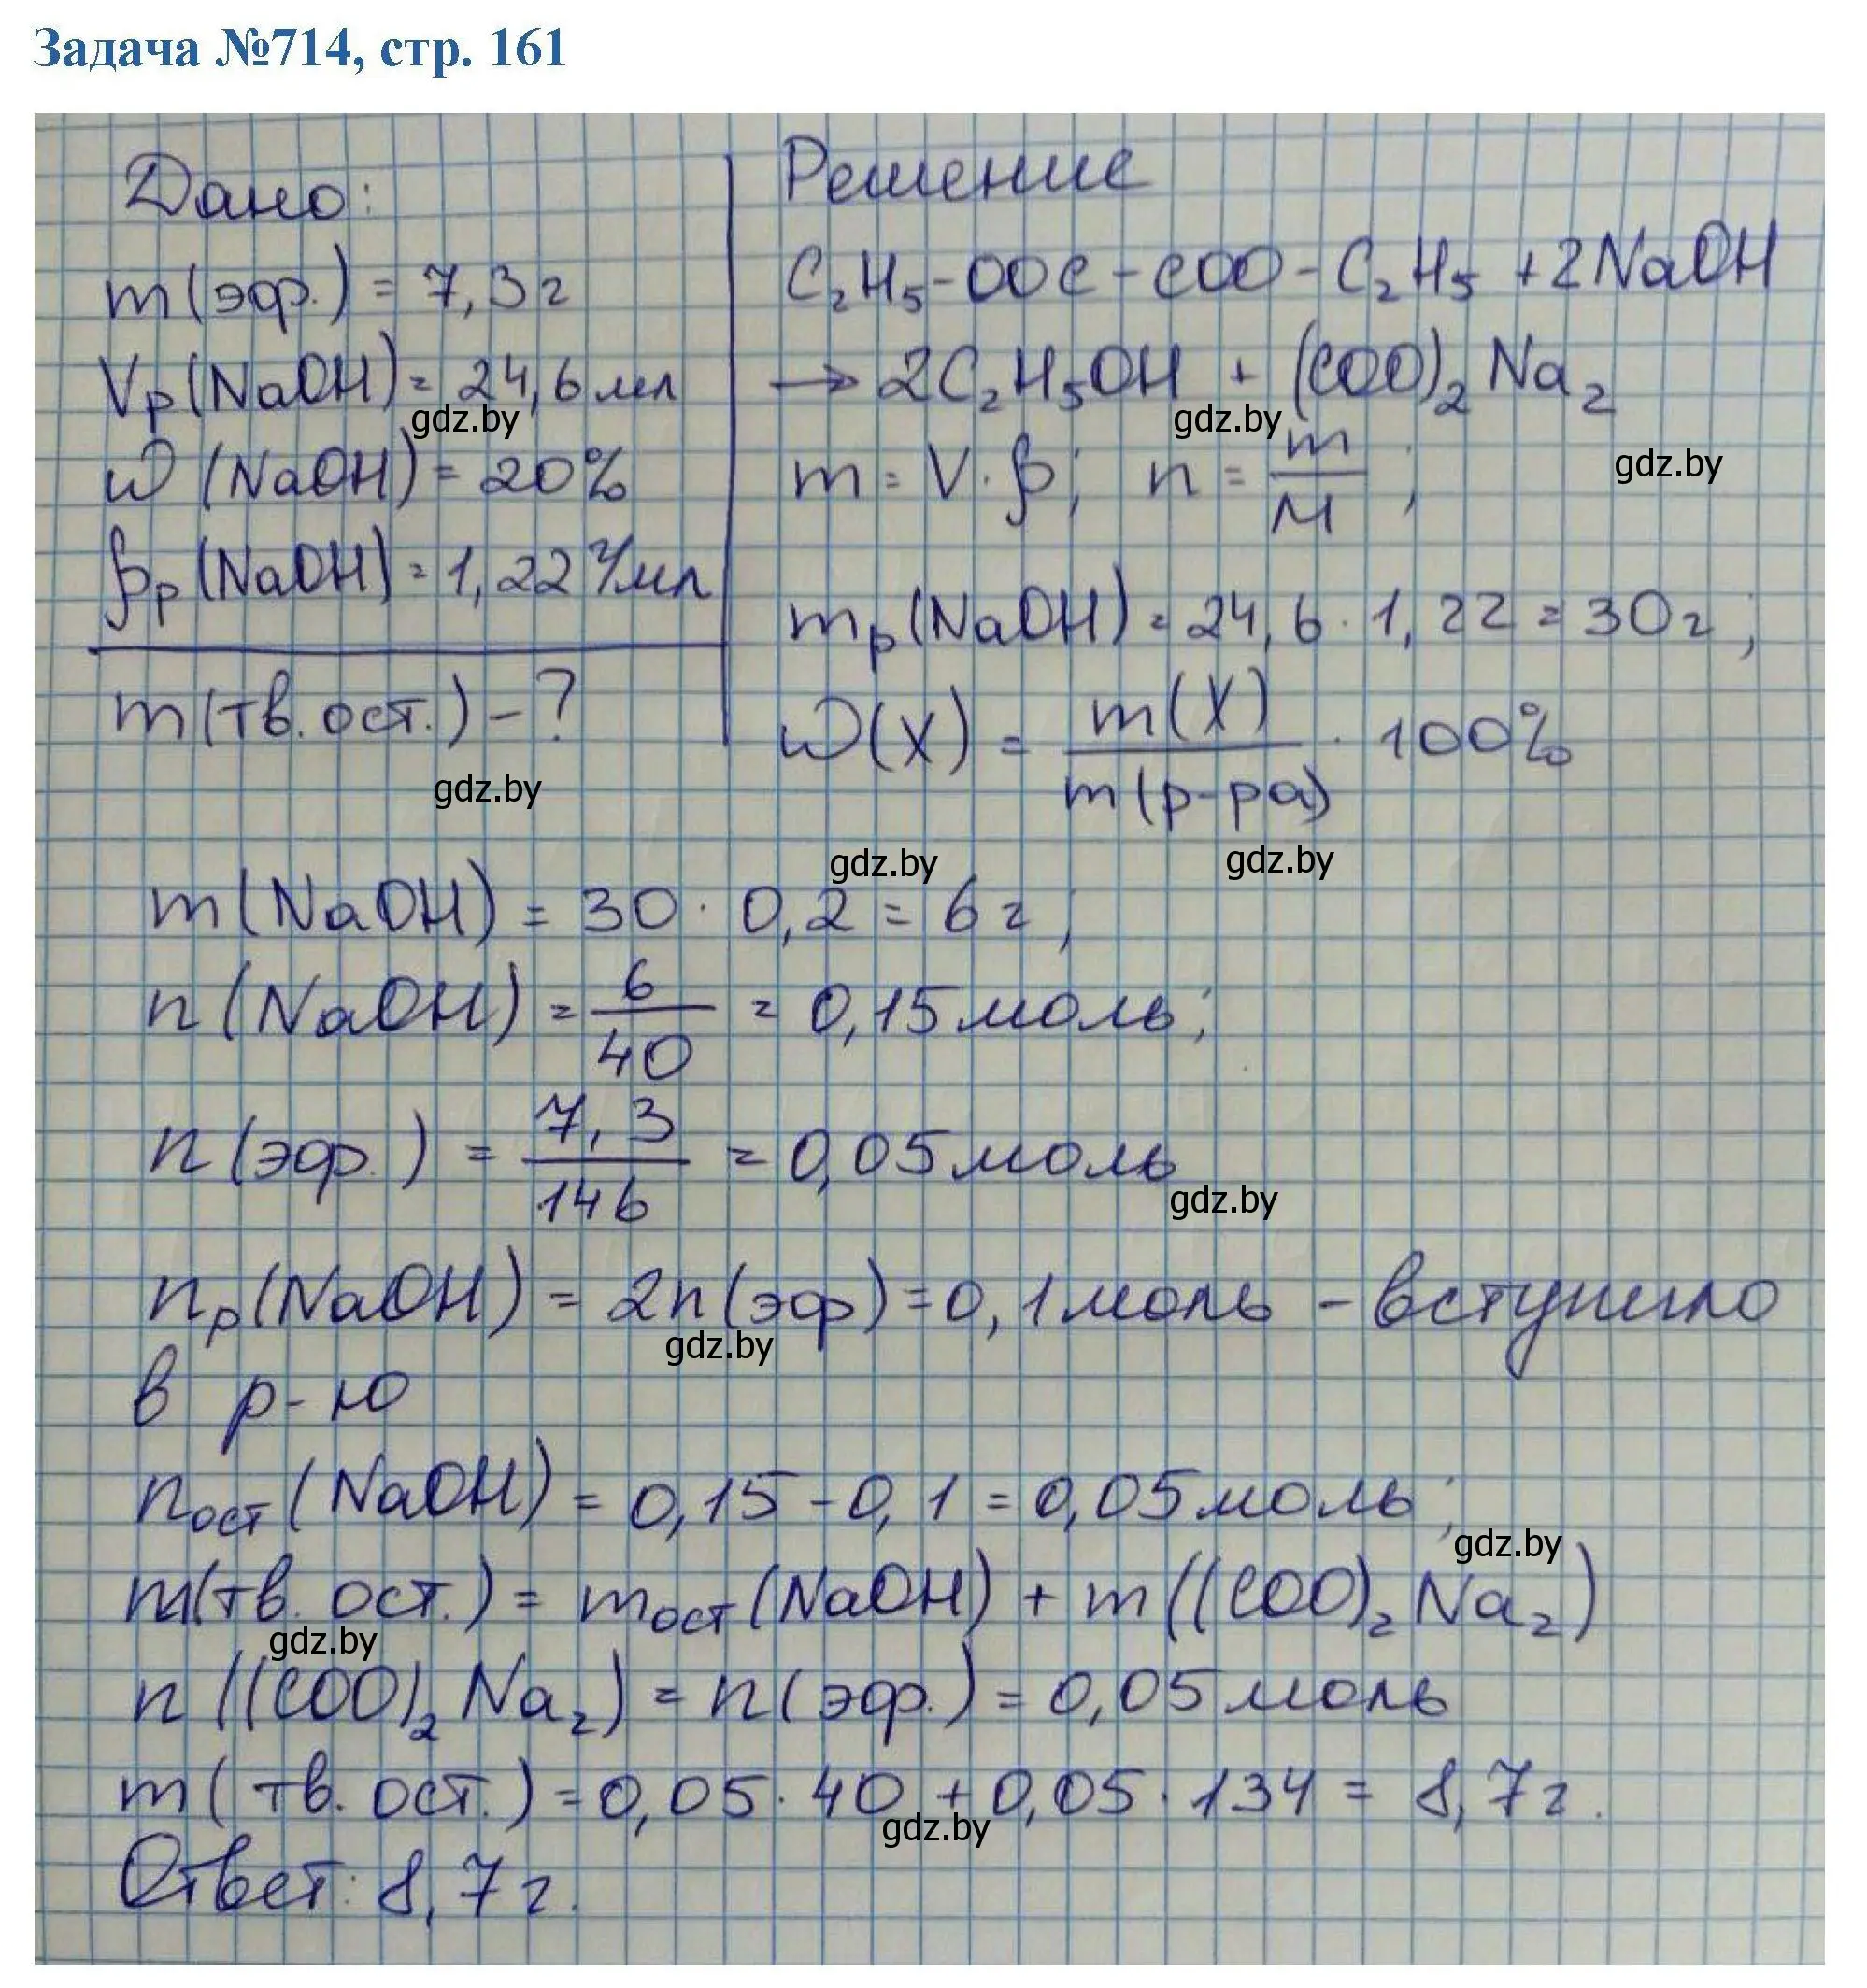 Задача №714, стр. 161
Дано:
m(эфр.) = 7,3г
Vр(NaOH) = 24,6 мл
gdz.by
ω(NaOH) = 20%
ρр(NaOH) = 1,22 г/мл
m(тв. ост.) - ?
gdz.by
Решение
C₂H₅-OOC-COO-C₂H₅ + 2NaOH
→ 2C₂H₅OH + (COO)₂Na₂
gdz.by
m = V·ρ; n = m/M;
gdz.by
mр(NaOH) = 24,6 · 1,22 = 30г;
ω(X) = m(X)/m(р-ра) · 100%
gdz.by
gdz.by
m(NaOH) = 30 · 0,2 = 6г;
n(NaOH) = 6/40 = 0,15 моль;
n(эфр.) = 7,3/146 = 0,05 моль
gdz.by
nр(NaOH) = 2n(эфр) = 0,1 моль - вступило
gdz.by
в р-ю
nост(NaOH) = 0,15 - 0,1 = 0,05 моль;
gdz.by
m(тв. ост.) = mост(NaOH) + m((COO)₂Na₂)
gdz.by
n((COO)₂Na₂) = n(эфр.) = 0,05 моль
m(тв. ост.) = 0,05 · 40 + 0,05 · 134 = 8,7г.
gdz.by
Ответ: 8,7г.